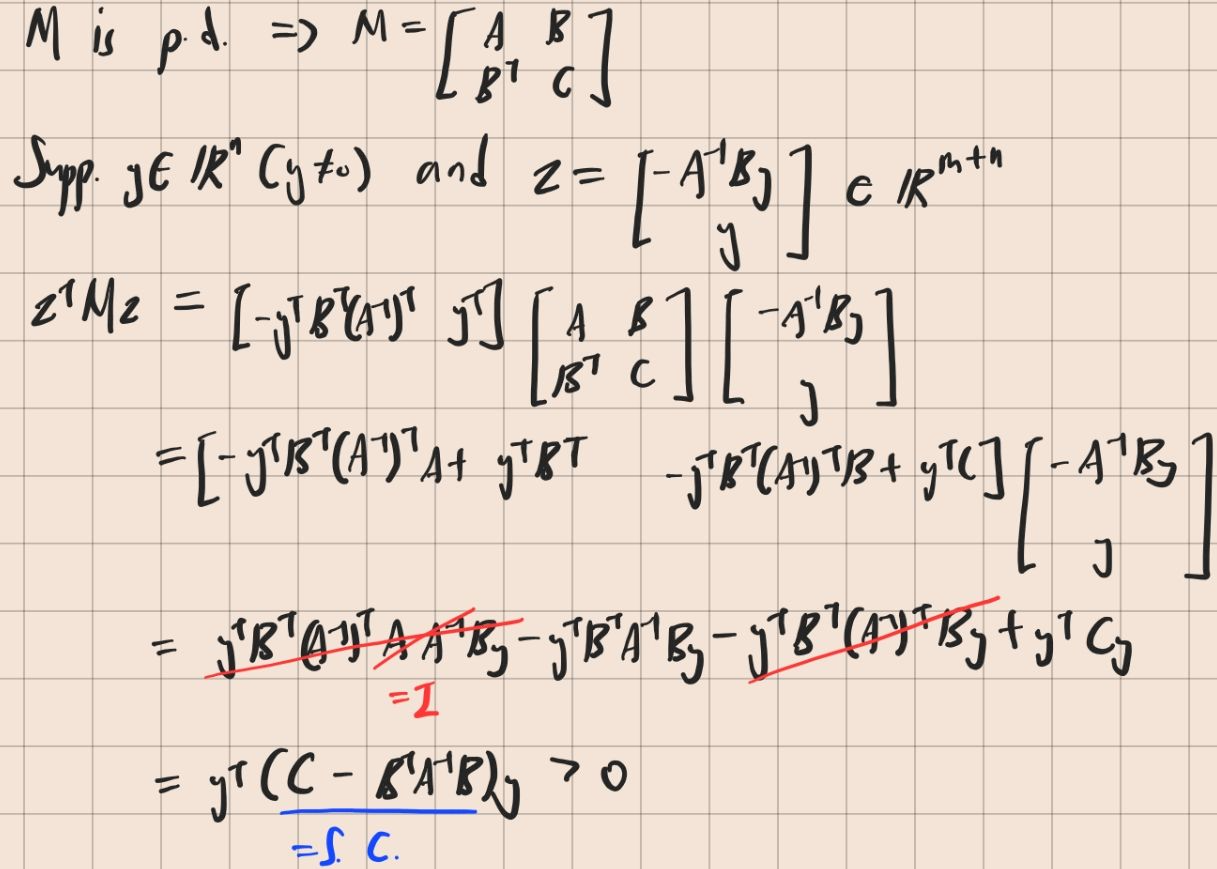 M is p.d. => M = [A B; Bᵀ C]
Supp. y ∈ ℝⁿ (y ≠ 0) and z = [-A⁻¹By; y] ∈ ℝᵐ⁺ⁿ
zᵀMz = [-yᵀBᵀ(A⁻¹)ᵀ yᵀ] [A B; Bᵀ C] [-A⁻¹By; y]
= [-yᵀBᵀ(A⁻¹)ᵀA + yᵀBᵀ -yᵀBᵀ(A⁻¹)ᵀB + yᵀC] [-A⁻¹By; y]
= yᵀBᵀ(A⁻¹)ᵀAA⁻¹By - yᵀBᵀA⁻¹By - yᵀBᵀ(A⁻¹)ᵀBy + yᵀCy
= I
= yᵀ(C - BᵀA⁻¹B)y > 0
= S. C.